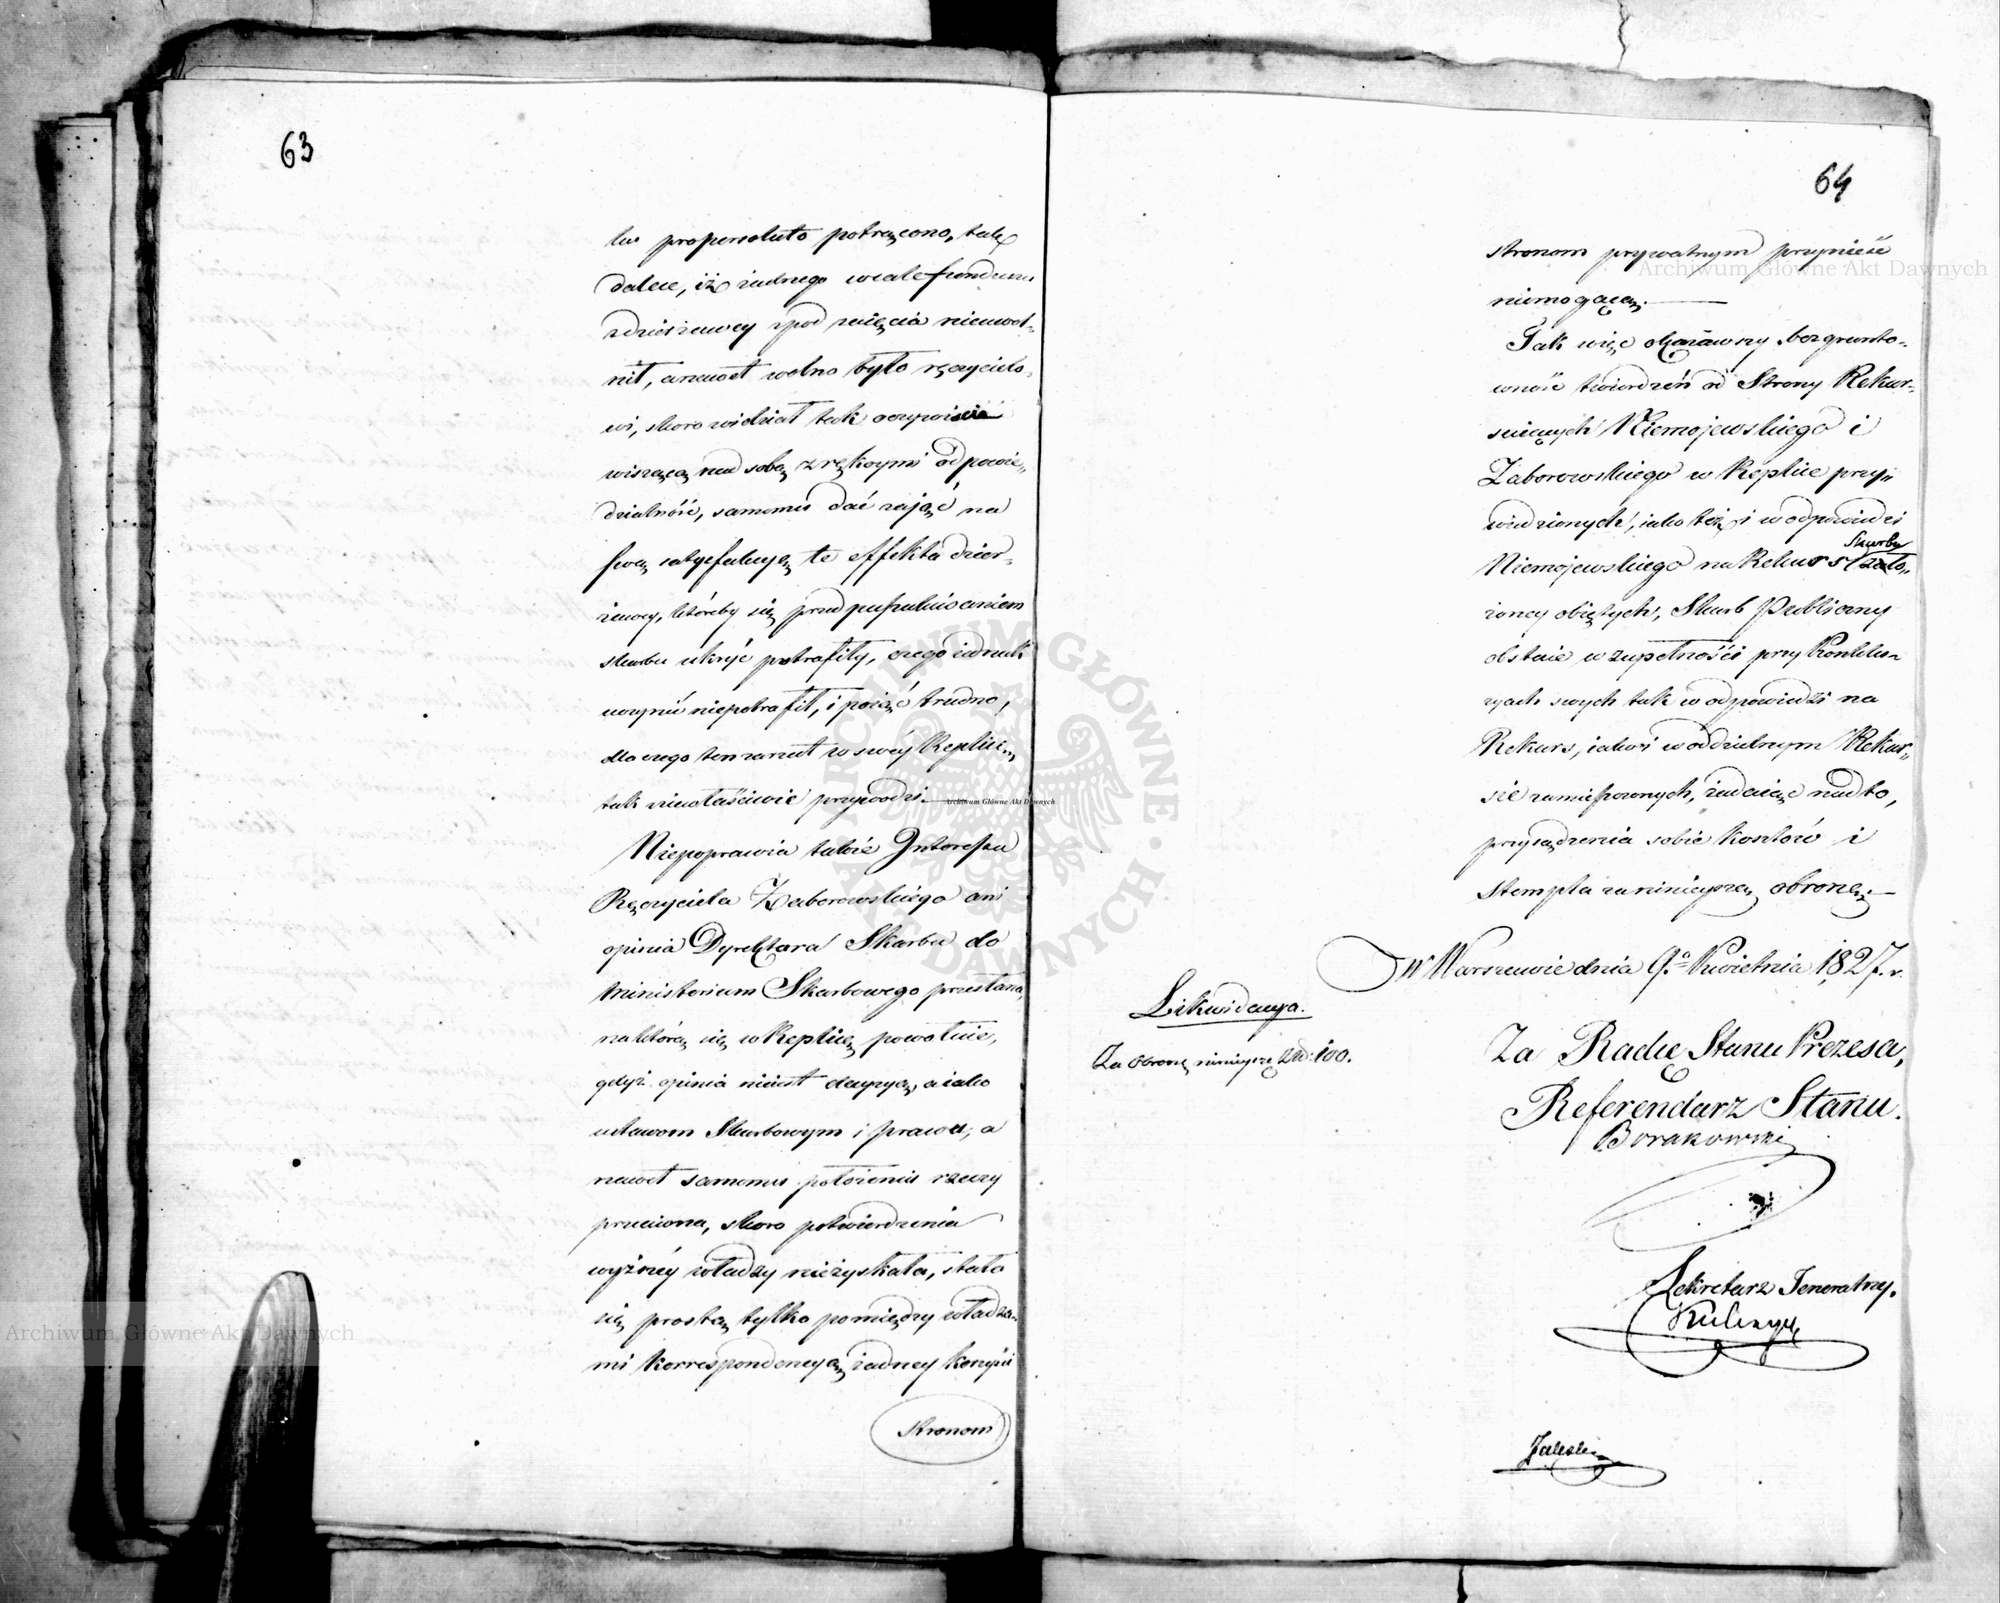 63
lu properсoluto potrącono, tak
dalece, iż żadnego wcale funduszu
zdzierżawcy zpod zaięcia nieuwol=
nił, a nawet wolno było ręczycielo=
wi, skoro widział tak oczywiście
wiszącą nad sobą z rękoymi odpowie=
dzialność, samemu dać zająć na
swą satysfakcyą te effekta dzier=
żawcy, któreby się przed poszukiwaniem
skarbu ukryć potrafiły, czego iednak
uczynić niepotrafił, i pojąć trudno,
dla czego ten zarzut w swéy Replice,
tak niewłaściwie przywodzi.
Niepoprawia także Interessu
Ręczyciela Zaborowskiego ani
opinia Dyrektora Skarbu do
Ministerium Skarbowego przesłana,
na którą się w Replice powołuie,
gdyż opinia nieiest decyzyą, a iako
ustawom Skarbowym i prawu, a
nawet samemu położeniu rzeczy
przeciwna, skoro potwierdzenia
wyższéy władzy niezyskała, stała
się prostą tylko pomiędzy władza=
mi korrespondencyą, żadney korzyści
stronom
64
stronom prywatnym przynieść
niemogącą.
Tak więc okazawszy bezgrunto=
wność twierdzeń od Strony Rekur=
suiących Niemojewskiego i
Zaborowskiego w Replice przy=
wiedzionych, iako też i w odpowiedzi
Skarbu
Niemojewskiego na Rekurs zało=
żoney obiętych, Skarb Publiczny
obstaie w zupełności przy Konklu=
zyach swych tak w odpowiedzi na
Rekurs, iakoi w oddzielnym Rekur=
sie zamieszczonych, żądaiąc nadto,
przysądzenia sobie kosztów i
stempla za ninieyszą obronę.
w Warszawie dnia 9.º Kwietnia 1827. r.
Likwidacya.
Za obronę ninieyszę Złt: 100.
Za Radcę Stanu Prezesa,
Referendarz Stanu.
Borakowski
Sekretarz Jeneralny.
Zaleski
Archiwum Główne Akt Dawnych
Archiwum Główne Akt Dawnych
Archiwum Główne Akt Dawnych
ARCHIWUM GŁÓWNE AKT DAWNYCH